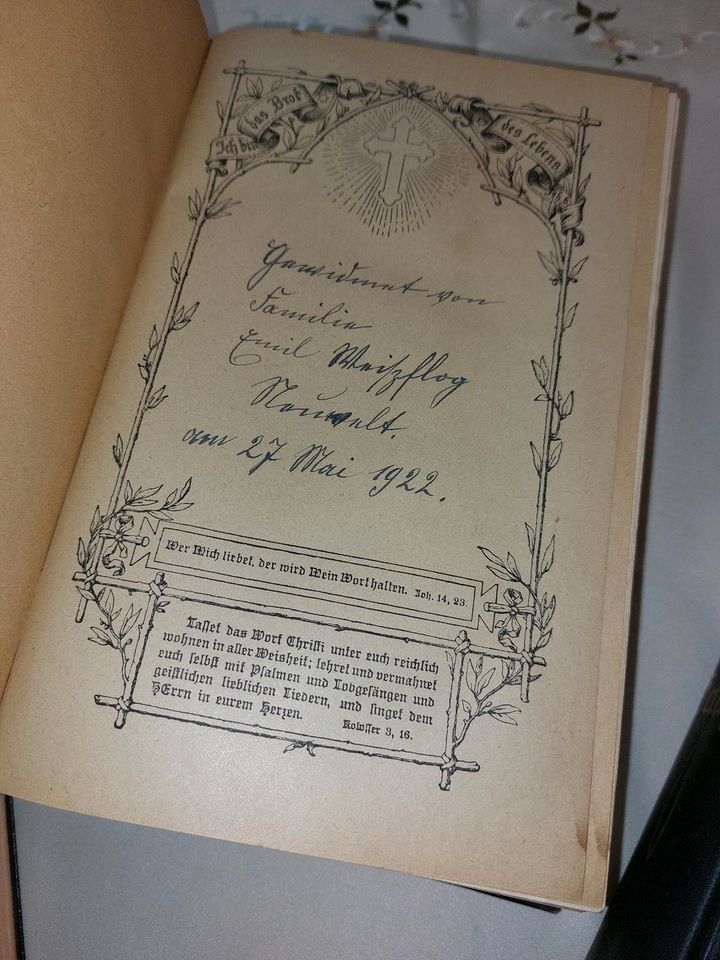 Ich bin das Brot des Lebens.
Gewidmet von
Familie
Emil Weiszflog
Neuwelt.
am 27 Mai 1922.
Wer Mich liebet, der wird Mein Wort halten. Joh. 14, 23.
Lasset das Wort Christi unter euch reichlich
wohnen in aller Weisheit; lehret und vermahnet
euch selbst mit Psalmen und Lobgesängen und
geistlichen lieblichen Liedern, und singet dem
HErrn in eurem Herzen.
Kolosser 3, 16.